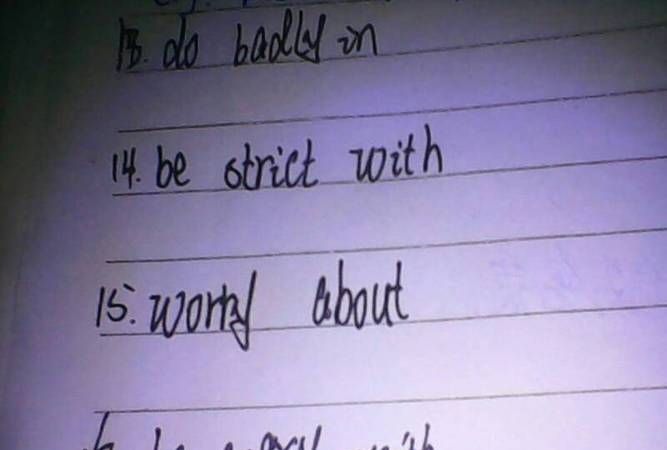 13. do badly in
14. be strict with
15. worry about
with